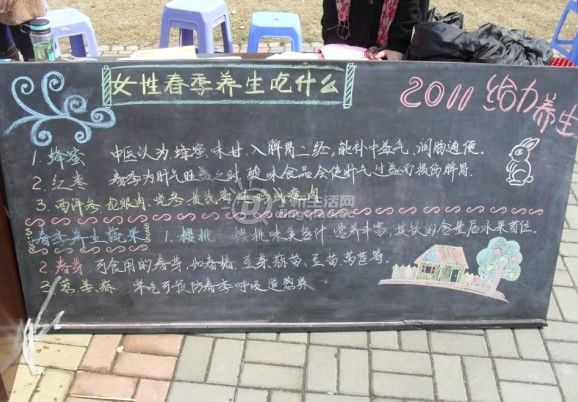 女性春季养生吃什么
2011给力养生
1. 蜂蜜 中医认为,蜂蜜味甘、入脾胃二经,能补中益气、润肠通便.
2. 红枣 春季为肝气旺盛之时,酸味食品会使肝气过盛而损伤脾胃.
3. 西洋参
春季养生蔬果 1. 樱桃 樱桃味美多汁 营养丰富,其铁的含量居水果首位.
2. 春芽 可食用的春芽,如香椿、豆芽、蒜苗、豆苗、莴苣等.
3. 常吃可预防春季呼吸道感染